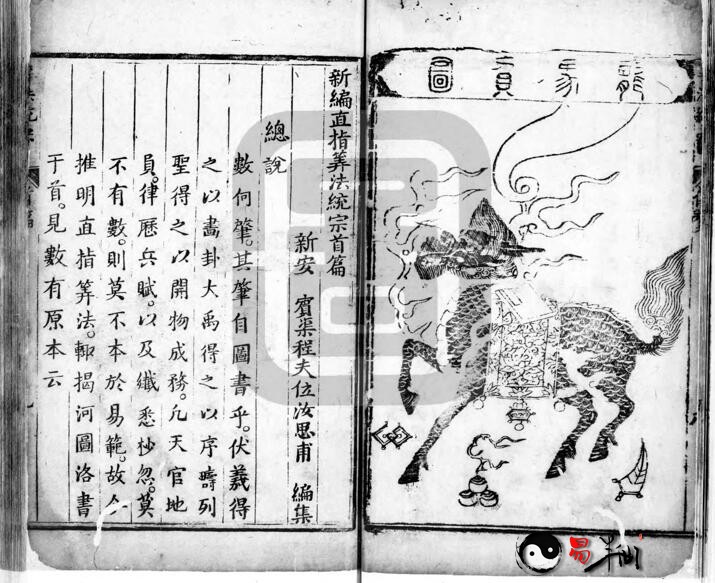 龍馬負圖
新編直指筭法統宗首篇
新安 賓渠程大位汝思甫 編集
總說
數何肇。其肇自圖書乎。伏羲得
之以畫卦大禹得之以序疇列
聖得之以開物成務。凡天官地
員。律曆兵賦。以及纖悉杪忽。莫
不有數。則莫不本於易範。故今
推明直指筭法。輒揭河圖洛書
于首。見數有原本云
易